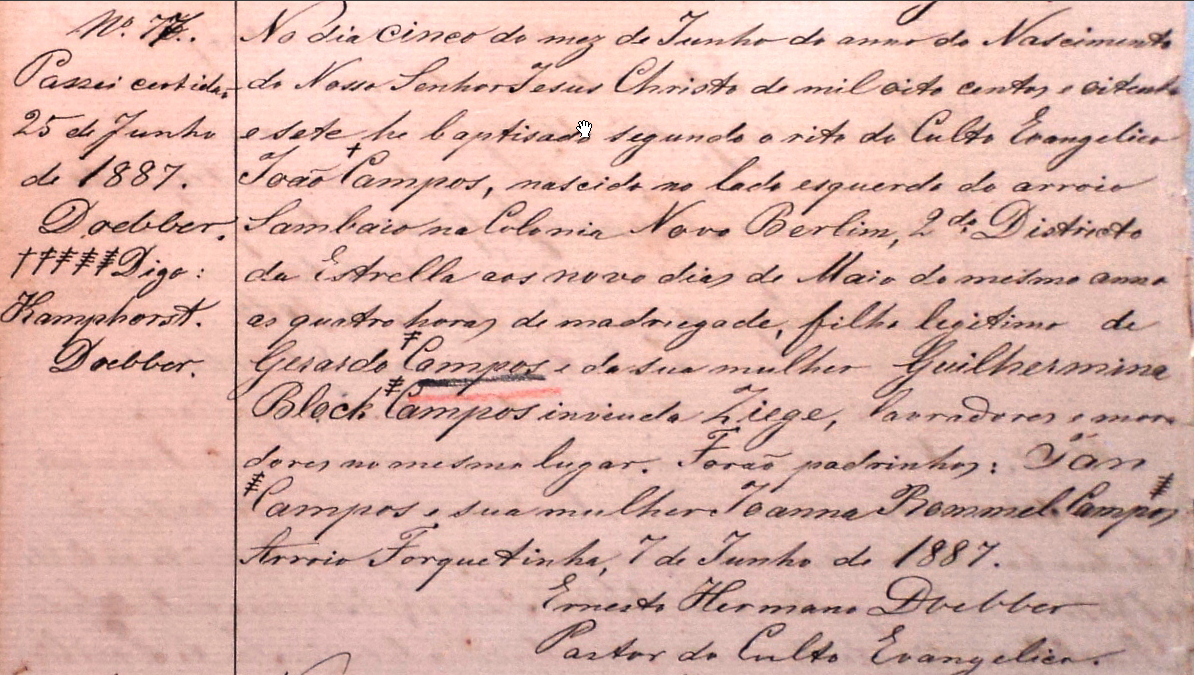 Nº. 77.
Passei certidão
25 de Junho
de 1887.
Doebber.
††‡‡‡ Digo:
Kamphorst.
Doebber.
No dia cinco do mez de Junho do anno do Nascimento
do Nosso Senhor Jesus Christo de mil oito centos e oitenta
e sete he baptisado segundo o rito do Culto Evangelico
João † Campos, nascido no lado esquerdo do arroio
Sambaio na Colonia Novo Berlim, 2do. Districto
da Estrella aos novo dias de Maio do mesmo anno
as quatro horas de madrugade, filho legitimo de
Gerardo ‡ Campos e da sua mulher Guilhermina
Block ‡ Campos inviuda Ziege, lavradores e mora-
dores no mesmo lugar. Forão padrinhos: Jan
‡ Campos e sua mulher Joanna Rommel ‡ Campos
Arroio Forquetinha, 7 de Junho de 1887.
Ernesto Hermano Doebber
Pastor do Culto Evangelico.